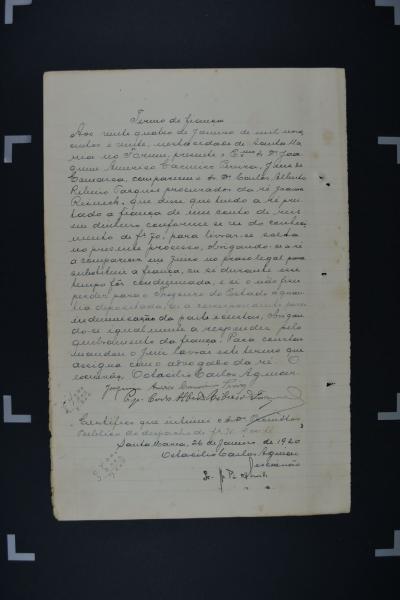 Termo de fiança
Aos vinte quatro de Janeiro de mil nove
centos e vinte, nesta cidade de Santa Ma
ria no Forum, presente o Exmo Sr Dr Joa
quim Americo Carneiro Pereira, Juiz de
Comarca, compareceu o Sr Dr Carlos Alberto
Ribeiro procurador da ré Joanna
que disse que tendo a ré pres
tado a fiança de um conto de reis
em dinheiro conforme se vê do conheci
mento de fs 70, para livrar-se solta
no presente processo, obrigando-se a ré
a comparecer em Juizo no praso legal para
substituir a fiança, ou se durante esse
tempo fôr condemnada, e se o não fizer
perder para o Thesouro do Estado a quan
tia depositada, e a correspondente para
indemnisação da parte e custas, obrigan
do-se igualmente a responder pelo
quebramento da fiança. Para constar
mandou o Juiz lavrar este termo que
assigna com o advogado da ré. O
escrivão, Octacilio Carlos Aguiar
Joaquim Americo Carneiro Pereira
Pp. Carlos Alberto Ribeiro
Certifico que intimei o Dr Promotor
Publico do despacho de
Santa Maria, 26 de Janeiro de 1920
Octacilio Carlos Aguiar
escrivão